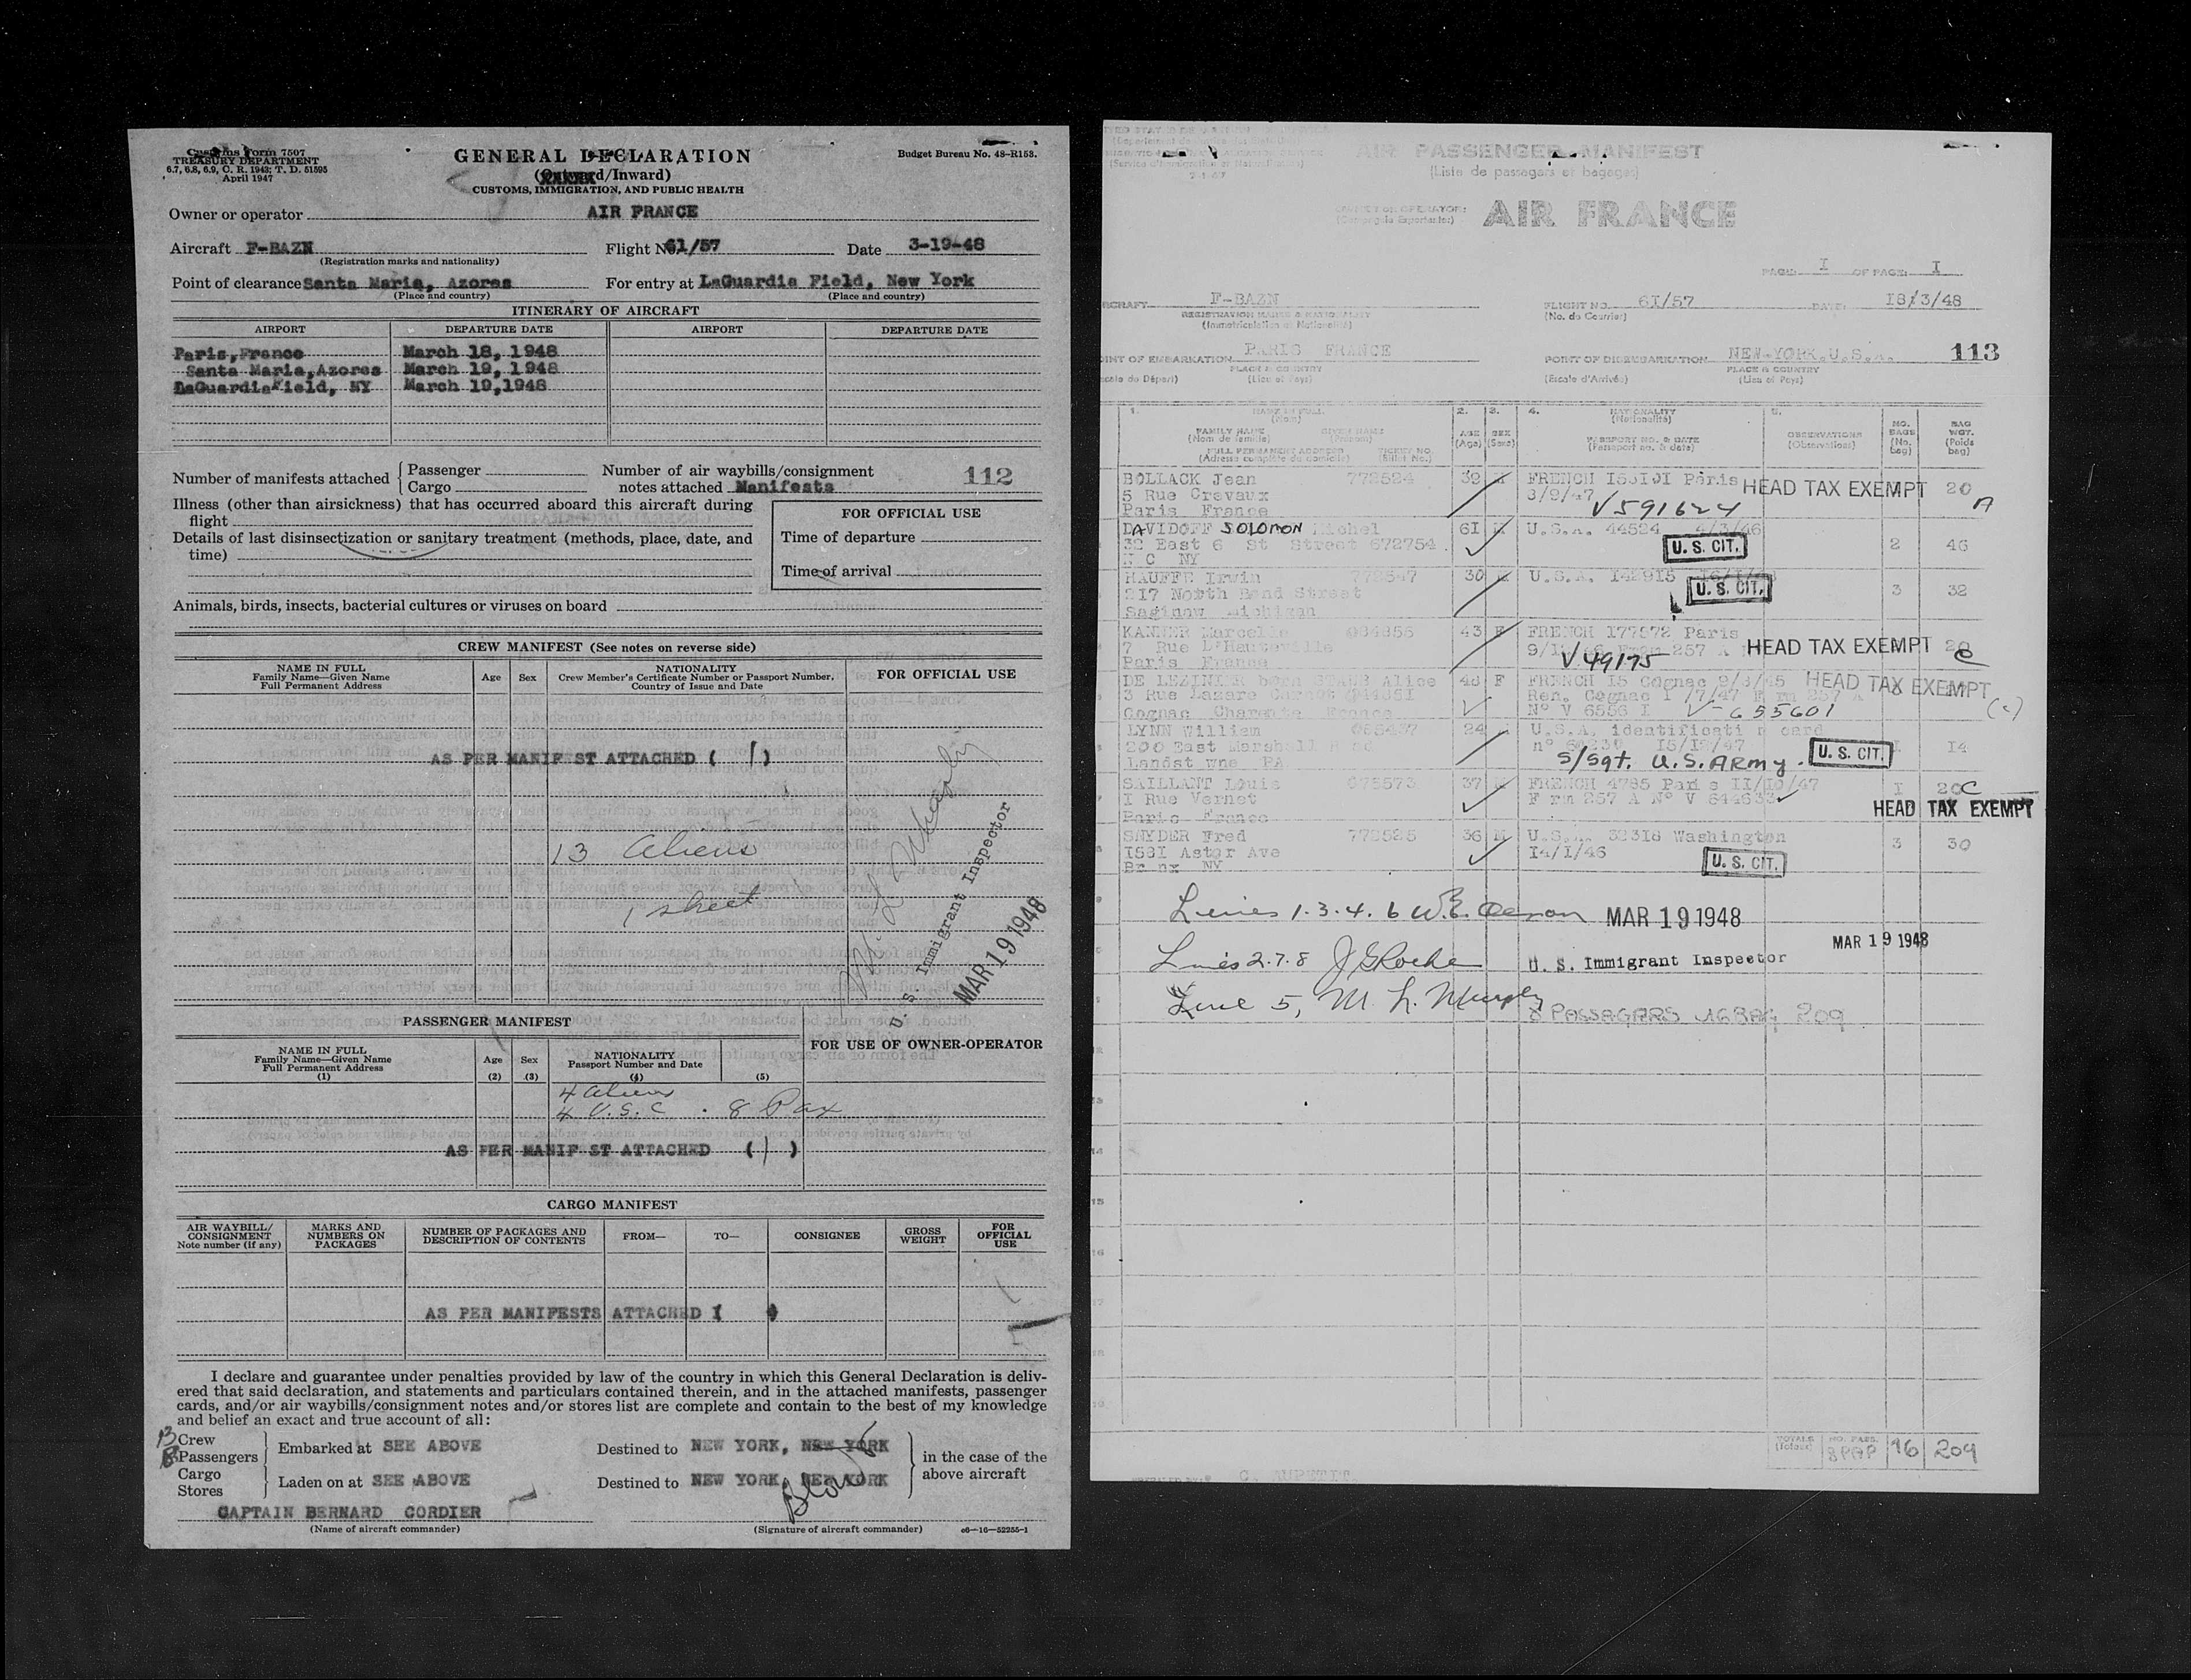 Customs Form 7507
TREASURY DEPARTMENT
6.7, 6.8, 6.9, C. R. 1943; T. D. 51595
April 1947
GENERAL DECLARATION
(Outward/Inward)
CUSTOMS, IMMIGRATION, AND PUBLIC HEALTH
Budget Bureau No. 48-R153.
Owner or operator AIR FRANCE
Aircraft F-BAZN Flight No 61/57 Date 3-19-48
(Registration marks and nationality)
Point of clearance Santa Maria, Azores For entry at LaGuardia Field, New York
(Place and country) (Place and country)
ITINERARY OF AIRCRAFT
AIRPORT DEPARTURE DATE AIRPORT DEPARTURE DATE
Paris, France March 18, 1948
Santa Maria, Azores March 19, 1948
LaGuardia Field, NY March 19, 1948
Number of manifests attached { Passenger
Cargo
Number of air waybills/consignment
notes attached Manifests
112
Illness (other than airsickness) that has occurred aboard this aircraft during
flight
Details of last disinsectization or sanitary treatment (methods, place, date, and
time)
FOR OFFICIAL USE
Time of departure
Time of arrival
Animals, birds, insects, bacterial cultures or viruses on board
CREW MANIFEST (See notes on reverse side)
NAME IN FULL
Family Name—Given Name
Full Permanent Address
Age Sex
NATIONALITY
Crew Member's Certificate Number or Passport Number,
Country of Issue and Date
FOR OFFICIAL USE
AS PER MANIFEST ATTACHED ( 1 )
13 Aliens
1 sheet
U. S. Immigrant Inspector
MAR 19 1948
PASSENGER MANIFEST
NAME IN FULL
Family Name—Given Name
Full Permanent Address
(1)
Age
(2)
Sex
(3)
NATIONALITY
Passport Number and Date
(4) (5)
FOR USE OF OWNER-OPERATOR
4 aliens
4 U.S.C . 8 Pax
AS PER MANIF ST ATTACHED ( 1 )
CARGO MANIFEST
AIR WAYBILL/
CONSIGNMENT
Note number (if any)
MARKS AND
NUMBERS ON
PACKAGES
NUMBER OF PACKAGES AND
DESCRIPTION OF CONTENTS
FROM— TO— CONSIGNEE
GROSS
WEIGHT
FOR
OFFICIAL
USE
AS PER MANIFESTS ATTACHED (
I declare and guarantee under penalties provided by law of the country in which this General Declaration is deliv-
ered that said declaration, and statements and particulars contained therein, and in the attached manifests, passenger
cards, and/or air waybills/consignment notes and/or stores list are complete and contain to the best of my knowledge
and belief an exact and true account of all:
13 Crew
8 Passengers
Embarked at SEE ABOVE Destined to NEW YORK, NEW YORK
Cargo
Stores
Laden on at SEE ABOVE Destined to NEW YORK, NEW YORK
in the case of the
above aircraft
CAPTAIN BERNARD CORDIER
(Name of aircraft commander) (Signature of aircraft commander) c6—16—52255-1
AIR PASSENGER MANIFEST
(Liste de passagers et bagages)
AIR FRANCE
PAGE I OF PAGE I
F-BAZN FLIGHT NO. 61/57 DATE 18/3/48
REGISTRATION MARKS & NATIONALITY
(Immatriculation et Nationalité) (No. de Courrier)
POINT OF EMBARKATION PARIS FRANCE POINT OF DISEMBARKATION NEW-YORK.U.S.A. 113
PLACE & COUNTRY PLACE & COUNTRY
(Escale d'Arrivée)
1. NAME IN FULL 2. 3. 4. NATIONALITY 5.
(Nom) (Nationalité)
FAMILY NAME GIVEN NAME
(Nom de famille) (Prénom)
AGE SEX
(Age) (Sexe)
PASSPORT NO. & DATE
(Passeport no. & date)
OBSERVATIONS
(Observations)
NO. BAGS
(No. bag)
BAG WGT.
(Poids bag)
FULL PERMANENT ADDRESS
(Adresse complète du domicile)
BOLLACK Jean 772524 39 FRENCH Paris HEAD TAX EXEMPT 20
5 Rue Crevaux 3/9/47 V591624 A
Paris France
DAVIDOFF SOLOMON Michel 61 U.S.A. 44524 4/3/46
32 East 6 St Street 672754 U. S. CIT. 2 46
N C NY
HAUFFE Irwin 772547 30 U.S.A. 142915
217 North Bond Street U. S. CIT. 3 32
Saginaw Michigan
KANNER Marcelle 43 F FRENCH 177572 Paris
7 Rue L'Hauteville HEAD TAX EXEMPT
Paris France V 49175 C
DE LEZINIER born STAUB Alice 48 F FRENCH 15 Cognac 9/3/45 HEAD TAX EXEMPT
3 Rue Lazare Carnot Ren. Cognac
Cognac Charente France V-655601 (c)
LYNN William 24 U.S.A. identificati n card
200 East Marshall R ad 15/12/47 U. S. CIT. I 14
Landst wne PA S/Sgt. U.S. ARMY.
SAILLANT Louis 075573 37 FRENCH 4785 Paris II/10/47 I 20 C
I Rue Vernet F rm 257 A N° V 644633
Paris France HEAD TAX EXEMPT
SNYDER Fred 772525 36 M U.S.A. 32318 Washington
1581 Astor Ave 14/1/46 3 30
Br nx NY U. S. CIT.
Lines 1.3.4.6 MAR 19 1948
MAR 19 1948
Lines 2.7.8 J G Roche U. S. Immigrant Inspector
Line 5, M. L. Murphy
8 PASSAGERS 16 BAG 209
TOTALS NO. PASS. 16 209
(Totaux)